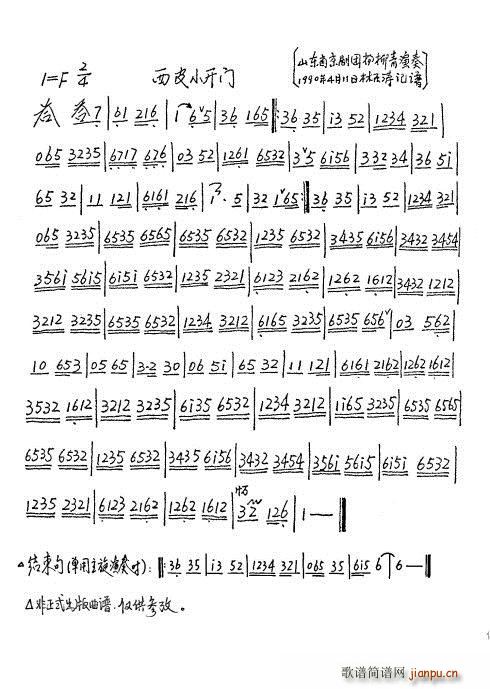 山东省京剧团柳柳青演奏
1=F 2/4 西皮小开门
1990年4月11日林石涛记谱
叁 叁7|61 216|1 6ˇ5|36 165‖:36 35|i3 52|1234 321|
065 3235|6717 676|03 52|1261 6532|3ˇ5 6i56|332 34|36 5i|
65 32|11 121|6161 216|1·5|32 1ˇ65:‖:36 35|i3 52|1234 321|
065 3235|6535 6565|6535 6532|1235 6532|3435 6i56|3432 3454|
356i 56i5|6i5i 6532|1235 2321|6123 2162|1262 1612|3432 1212|
3212 3235|6535 6532|1234 3212|6165 3235|6535 656ˇ|03 562|
10 653|05 65|3·2 30|06 5i|65 32|11 121|6161 2162|1262 1612|
3532 1612|3212 3235|6i35 6532|1234 3212|1i65 3235|6535 6565|
6535 6532|1235 6532|3435 6i56|3432 3454|356i 56i5|6i5i 6532|
1235 2321|6123 2162|1262 1612|32 126|1—‖
△结束句(单用主旋演奏时):‖:36 35|i3 52|1234 321|065 35|6i5 6|6—‖
△非正式出版曲谱.仅供参改。
歌谱简谱网
jianpu.cn